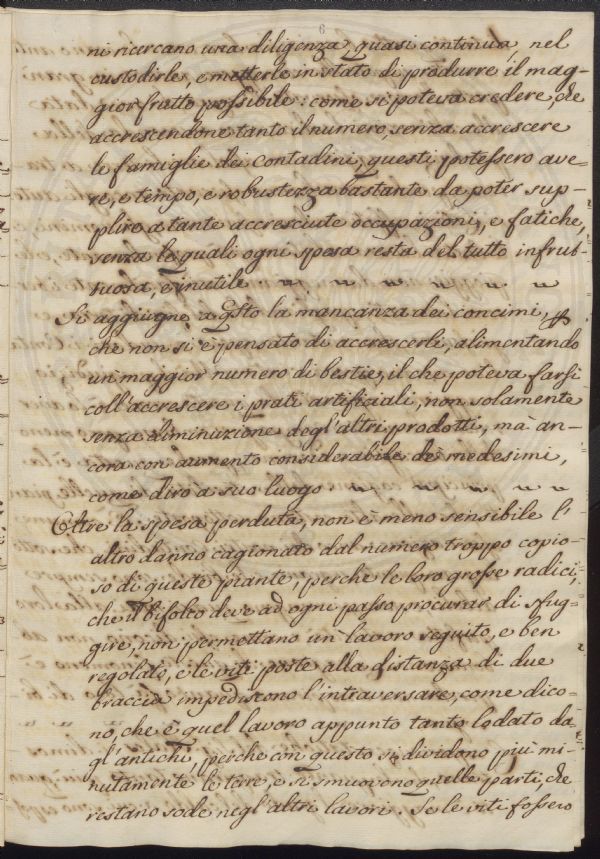 6
ni ricercano una diligenza quasi continua, nel
custodirle, e metterle in stato di produrre il mag-
gior frutto possibile: come si poteva credere, che
accrescendone tanto il numero, senza accrescere
le famiglie dei Contadini, questi potessero ave-
re, e tempo, e robustezza bastante da poter sup-
plire a tante accresciute occupazioni, e fatiche,
senza la quali ogni spesa resta del tutto infrut-
tuosa, e inutile
Si aggiugne a Qsto la mancanza dei concimi,
che non si è pensato di accrescerli, alimentando
un maggior numero di bestie, il che poteva farsi
coll'accrescere i prati artificiali, non solamente
senza diminuzione degl'altri prodotti, mà an-
cora con aumento considerabile de' medesimi,
come dirò a suo luogo
Oltre la spesa perduta, non è meno sensibile l'
altro danno cagionato dal numero troppo copio-
so di queste piante, perche le loro grosse radici,
che il bifolco deve ad ogni passo procurar di sfug-
gire, non permettano un lavoro seguito, e ben
regolato, e le viti poste alla distanza di due
braccia impediscono l'intraversare, come dico-
no, che è quel lavoro appunto tanto lodato da-
gl'antichi, perche con questo si dividono più mi-
nutamente le terre, e si smuovono quelle parti, che
restano sode negl'altri lavori. Se le viti fossero